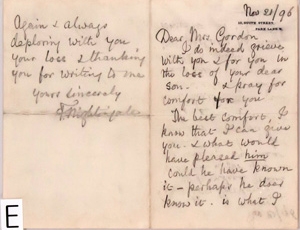 Nov 21/96
10, SOUTH STREET,
PARK LANE. W.
Dear Mrs. Gordon
I do indeed grieve
with you & for you in
the loss of your dear
son. & pray for
comfort for you
The best comfort, I
know that I can give
you. & what would
have pleased him
could he have known
it - perhaps he does
know it. is what I
Again & always
deploring with you
your loss & thanking
you for writing to me
Yours sincerely
F. Nightingale
E